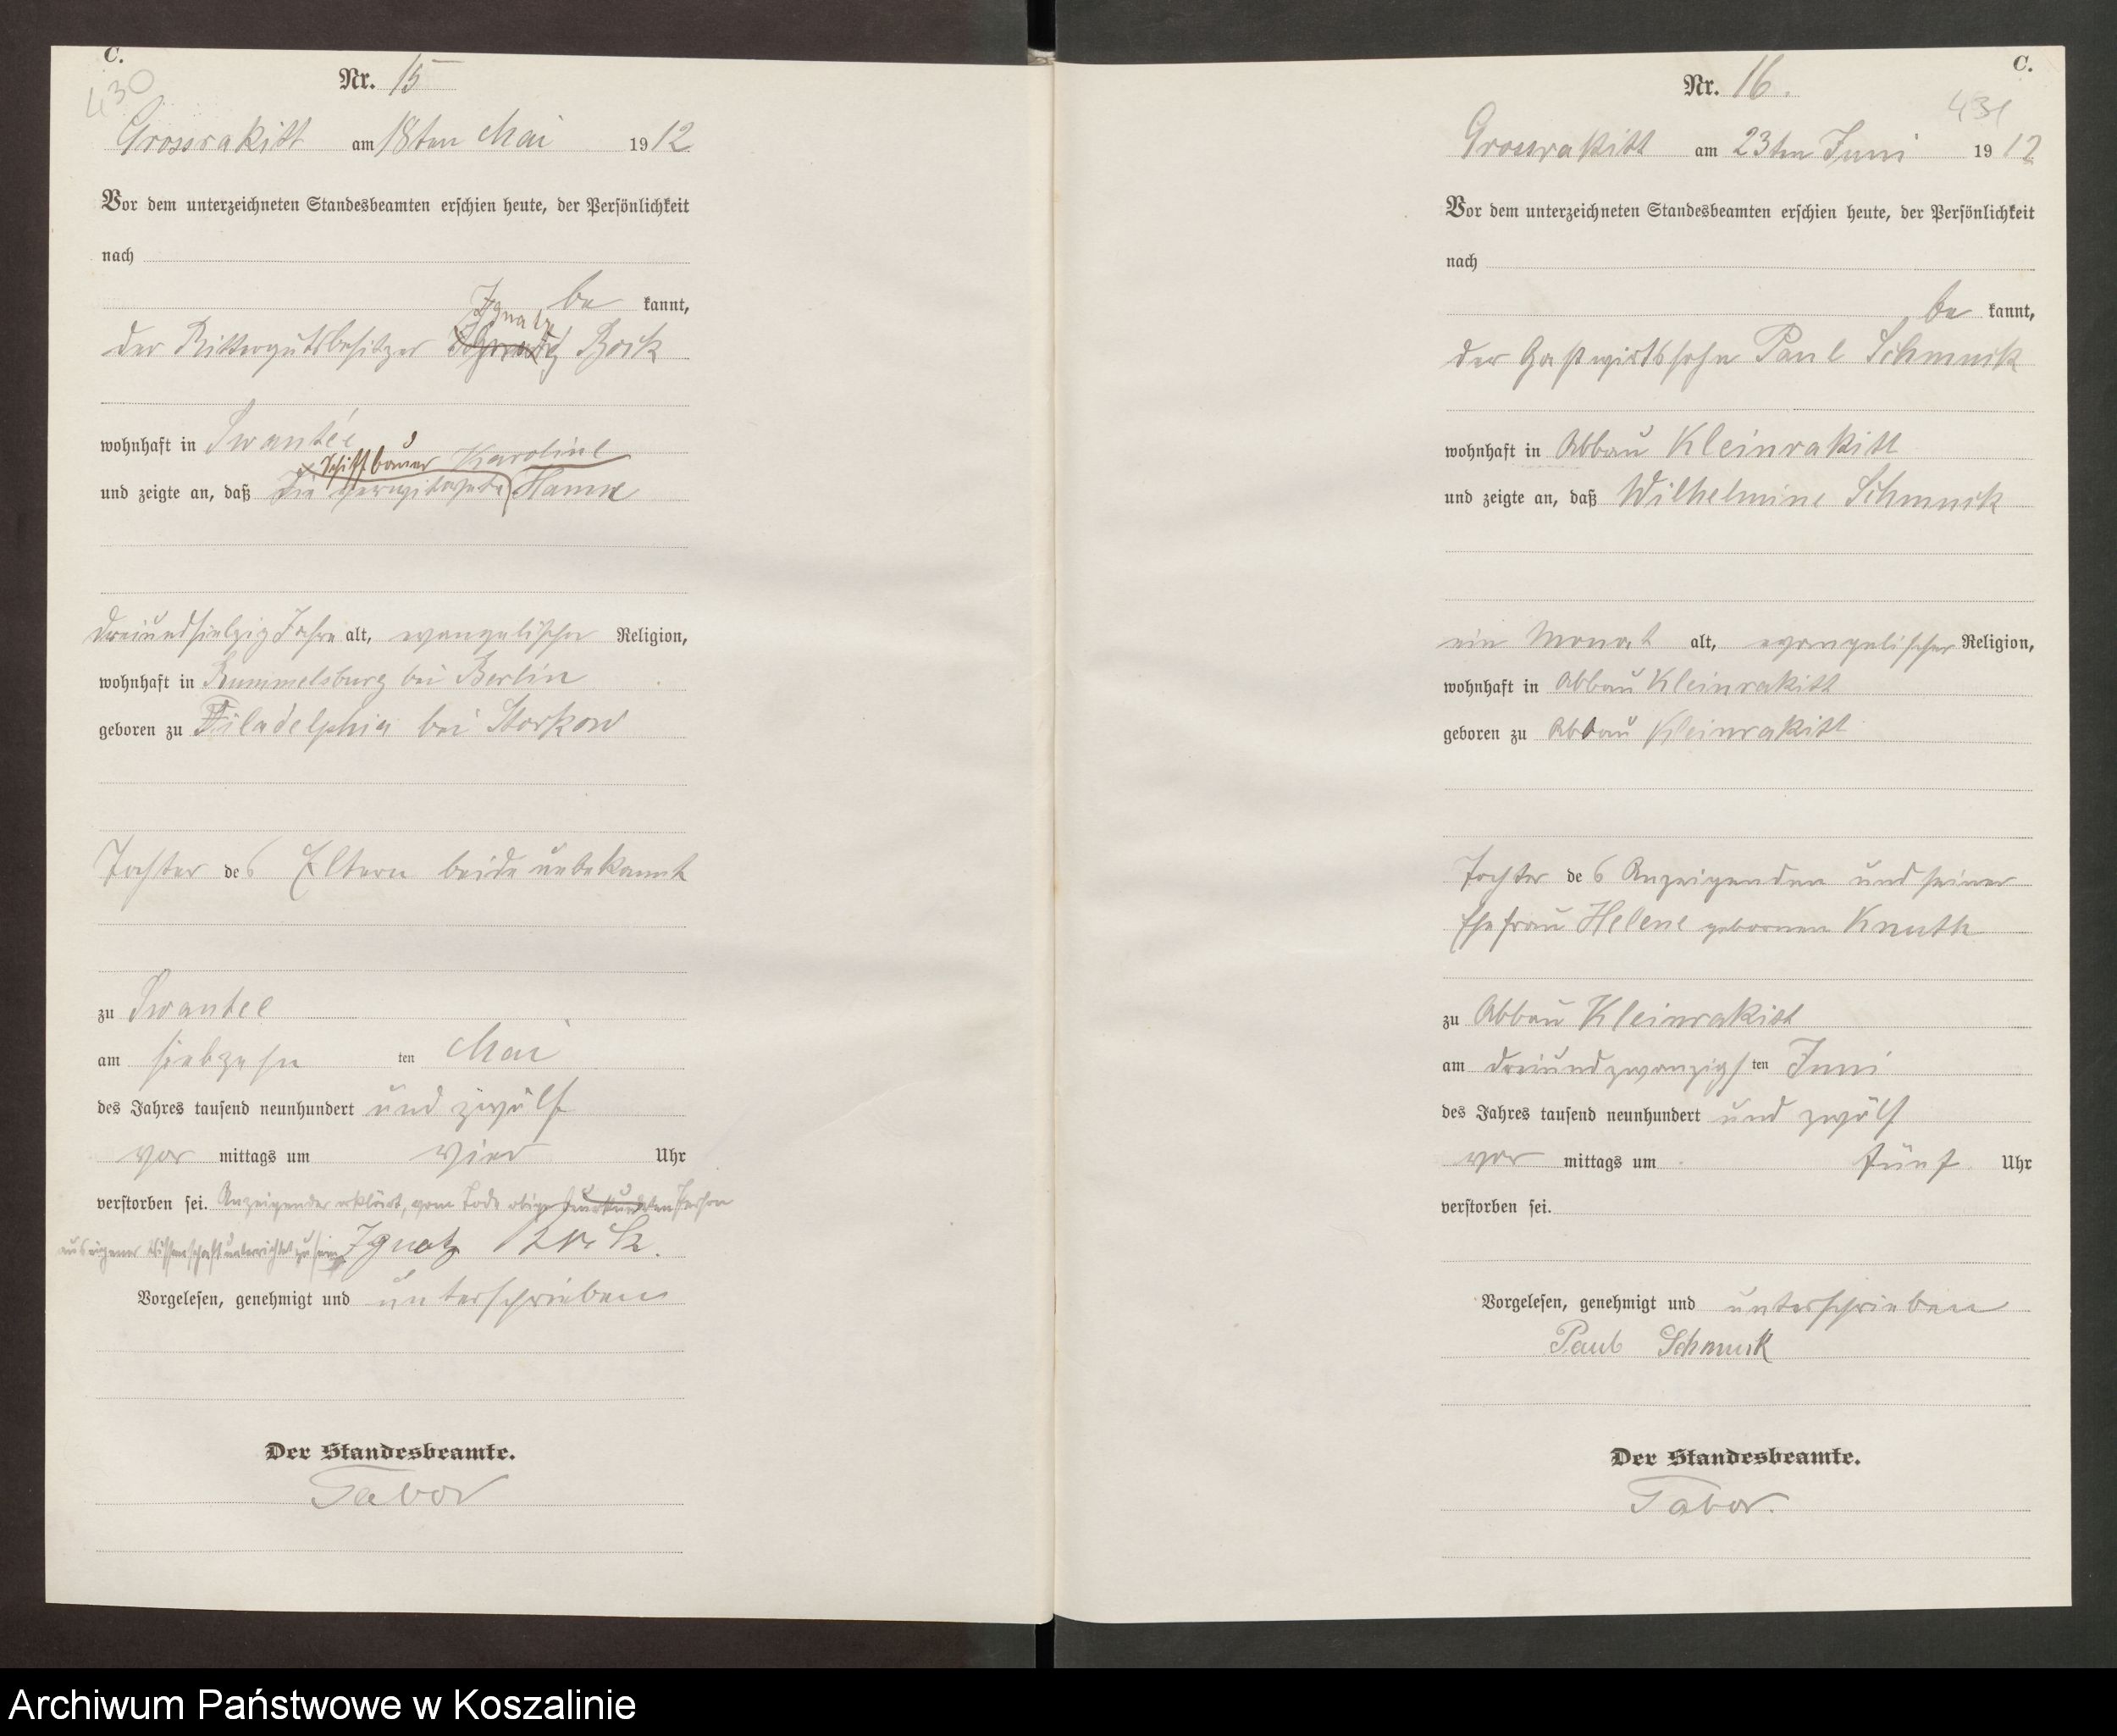 C.
430
Nr. 15
Grossrakitt am 18ten Mai 1912
Vor dem unterzeichneten Standesbeamten erschien heute, der Persönlichkeit
nach
Ignatz be kannt,
der Rittergutsbesitzer Bock
wohnhaft in Swantee
Schiffbauer Karoline
und zeigte an, daß die verwitwete Hamn
dreiundsiebzig Jahre alt, evangelischer Religion,
wohnhaft in Rummelsburg bei Berlin
geboren zu Filadelphia bei Storkow
Tochter des Eltern beide unbekannt
zu Swantee
am siebzehn ten Mai
des Jahres tausend neunhundert und zwölf
vor mittags um vier Uhr
verstorben sei. Anzeigender erklärt, vom Tode obiger Person
aus eigener Wissenschaft unterrichtet zu sein Ignatz
Vorgelesen, genehmigt und unterschrieben
Der Standesbeamte.
Tabor
C.
431
Nr. 16.
Grossrakitt am 23ten Juni 1912
Vor dem unterzeichneten Standesbeamten erschien heute, der Persönlichkeit
nach
be kannt,
der Gastwirtssohn Paul Schmuck
wohnhaft in Abbau Kleinrakitt
und zeigte an, daß Wilhelmine Schmuck
ein Monat alt, evangelischer Religion,
wohnhaft in Abbau Kleinrakitt
geboren zu Abbau Kleinrakitt
Tochter des Anzeigenden und seiner
Ehefrau Helene geborenen Knuth
zu Abbau Kleinrakitt
am dreiundzwanzigsten Juni
des Jahres tausend neunhundert und zwölf
vor mittags um fünf Uhr
verstorben sei.
Vorgelesen, genehmigt und unterschrieben
Paul Schmuck
Der Standesbeamte.
Tabor.
Archiwum Państwowe w Koszalinie